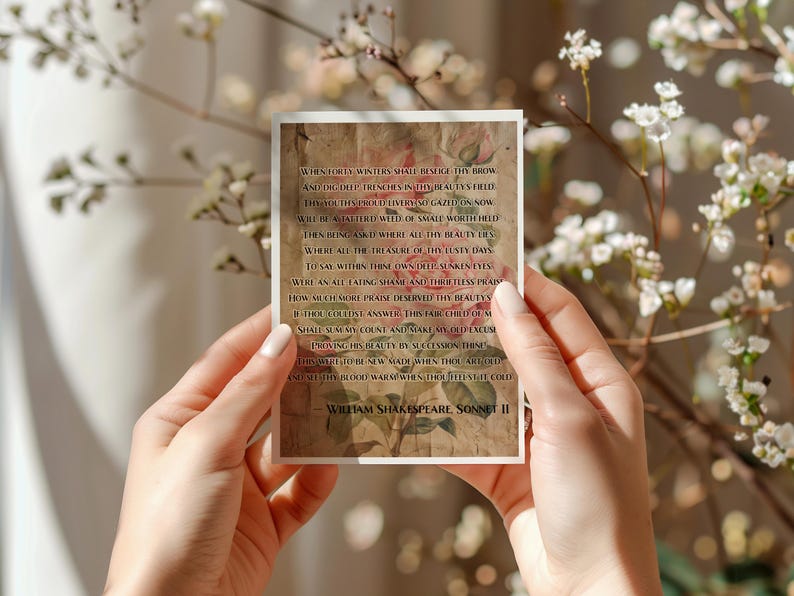 When forty winters shall beseige thy brow,
And dig deep trenches in thy beauty's field,
Thy youth's proud livery, so gazed on now,
Will be a tatter'd weed, of small worth held:
Then being ask'd where all thy beauty lies,
Where all the treasure of thy lusty days,
To say, within thine own deep-sunken eyes,
Were an all-eating shame and thriftless praise.
How much more praise deserved thy beauty's
If thou couldst answer 'This fair child of
Shall sum my count and make my old excuse,'
Proving his beauty by succession thine!
This were to be new made when thou art old,
And see thy blood warm when thou feel'st it cold.
— William Shakespeare, Sonnet II